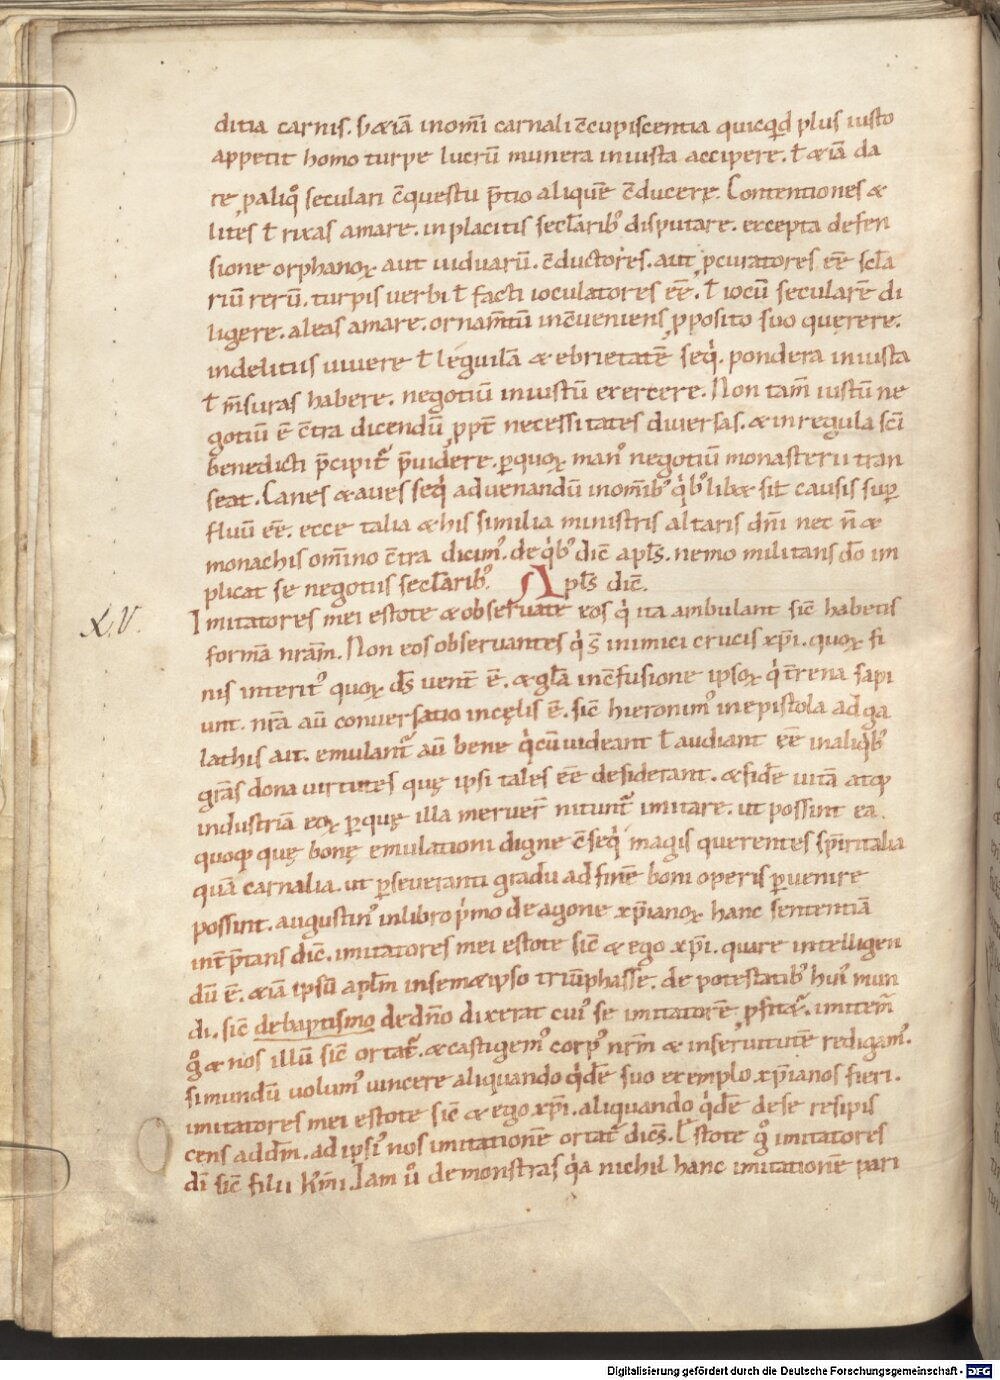 ditia carnis. s̄ &iā in om̄i carnali c̄cupiscentia quicq̇d plus iusto
appetit homo turpe lucrū munera iniusta accipere. ł &iā da
re, p aliq̊ seculari c̄questu p̄tio aliquē c̄ducerę. Contentiones &
lites ł rixas amare. in placitis secłarib; disputare. excepta defen
sione orphanoꝝ aut uiduarū. c̄ductores. aut ꝓcuratores eē scła
riū rerū. turpis uerbi ł facti ioculatores eē. ł iocū secularē di
ligere. aleas amare. ornam̄tū inc̄ueniens ꝓposito suo quęrere.
in delitiis uiuere ł & ebrietatē seq̇. pondera iniusta
ł m̄suras habere. negotiū iniustū exercere. Non tam̄ iustū ne
gotiū ē c̄tra dicendū ꝓpt̄ necessitates diuersas. & in regula sc̄i
benedicti p̄cipit᷑ p̄uidere. ꝑ quoꝝ man᷒ negotiū monasterii tran
seat. Canes & aues seq̇ ad uenandū in om̄ib; q̇b; lib& sit causis sup̄
fluū eē. ecce talia & his similia ministris altaris dn̄i nec n̄ &
monachis om̄ino c̄tra dicim᷒. de q̇b; dic̄ apłs. nemo militans do̅ im
plicat se negotiis secłarib;. Apłs dic̄.
X.V.
Imitatores mei estote & obseruate eos q̇ ita ambulant sic̄ habetis
formā nr̄am. Non eos obseruantes q̇ s̄ inimici crucis xp̄i. quoꝝ fi
nis interit᷒ quoꝝ ds̄ uent̄ ē. & gła in c̄fusione ipsoꝝ q̇ t̄rena sapi
unt. nr̄a aū conuersatio in cęlis ē. sic̄ hieronim᷒ in epistola ad ga
lathis ait. emulant᷑ aū bene q̇ cū uideant ł audiant eē in aliq̇b;
gr̄as dona uirtutes quę ipsi tales eē desiderant. & fidē uitā atq;
industriā eoꝝ ꝑ quę illa meruer̄ nitunt᷑ imitare. ut possint ea
quoq; quę bonę emulationi digne c̄seq̇ magis querentes sp̄iritalia
quā carnalia. ut ꝑseueranti gradu ad finē boni operis ꝑuenire
possint. augustin᷒ in libro ṗmo de agone xp̄ianoꝝ hanc sententiā
int̄p̄tans dic̄. imitatores mei estote sic̄ & ego xp̄i. quare intelligen
dū ē. &iā ipsū apłm in sem&ipso triūphasse. de potestatib; hui᷒ mun
di. sic̄ de baptismo de dn̄o dixerat cui᷒ se imitatorē ꝓfit&᷑. imitem᷑
g̊ & nos illū sic̄ ortat᷑. & castigem᷒ corp᷒ nr̄m & in seruitutē redigam᷒.
si mundū uolum᷒ uincere aliquando q̇dē suo exemplo xp̄ianos fieri.
imitatores mei estote sic̄ & ego xp̄i. aliquando q̇dē de se resipis
cens ad dm̄. ad ipsi᷒ nos imitationē ortat᷑ dicēs. Estote g̊ imitatores
di̅ sic̄ filii k̄mi. Iam u̇o demonstras q̇a nichil hanc imitationē pari
Digitalisierung gefördert durch die Deutsche Forschungsgemeinschaft - DFG